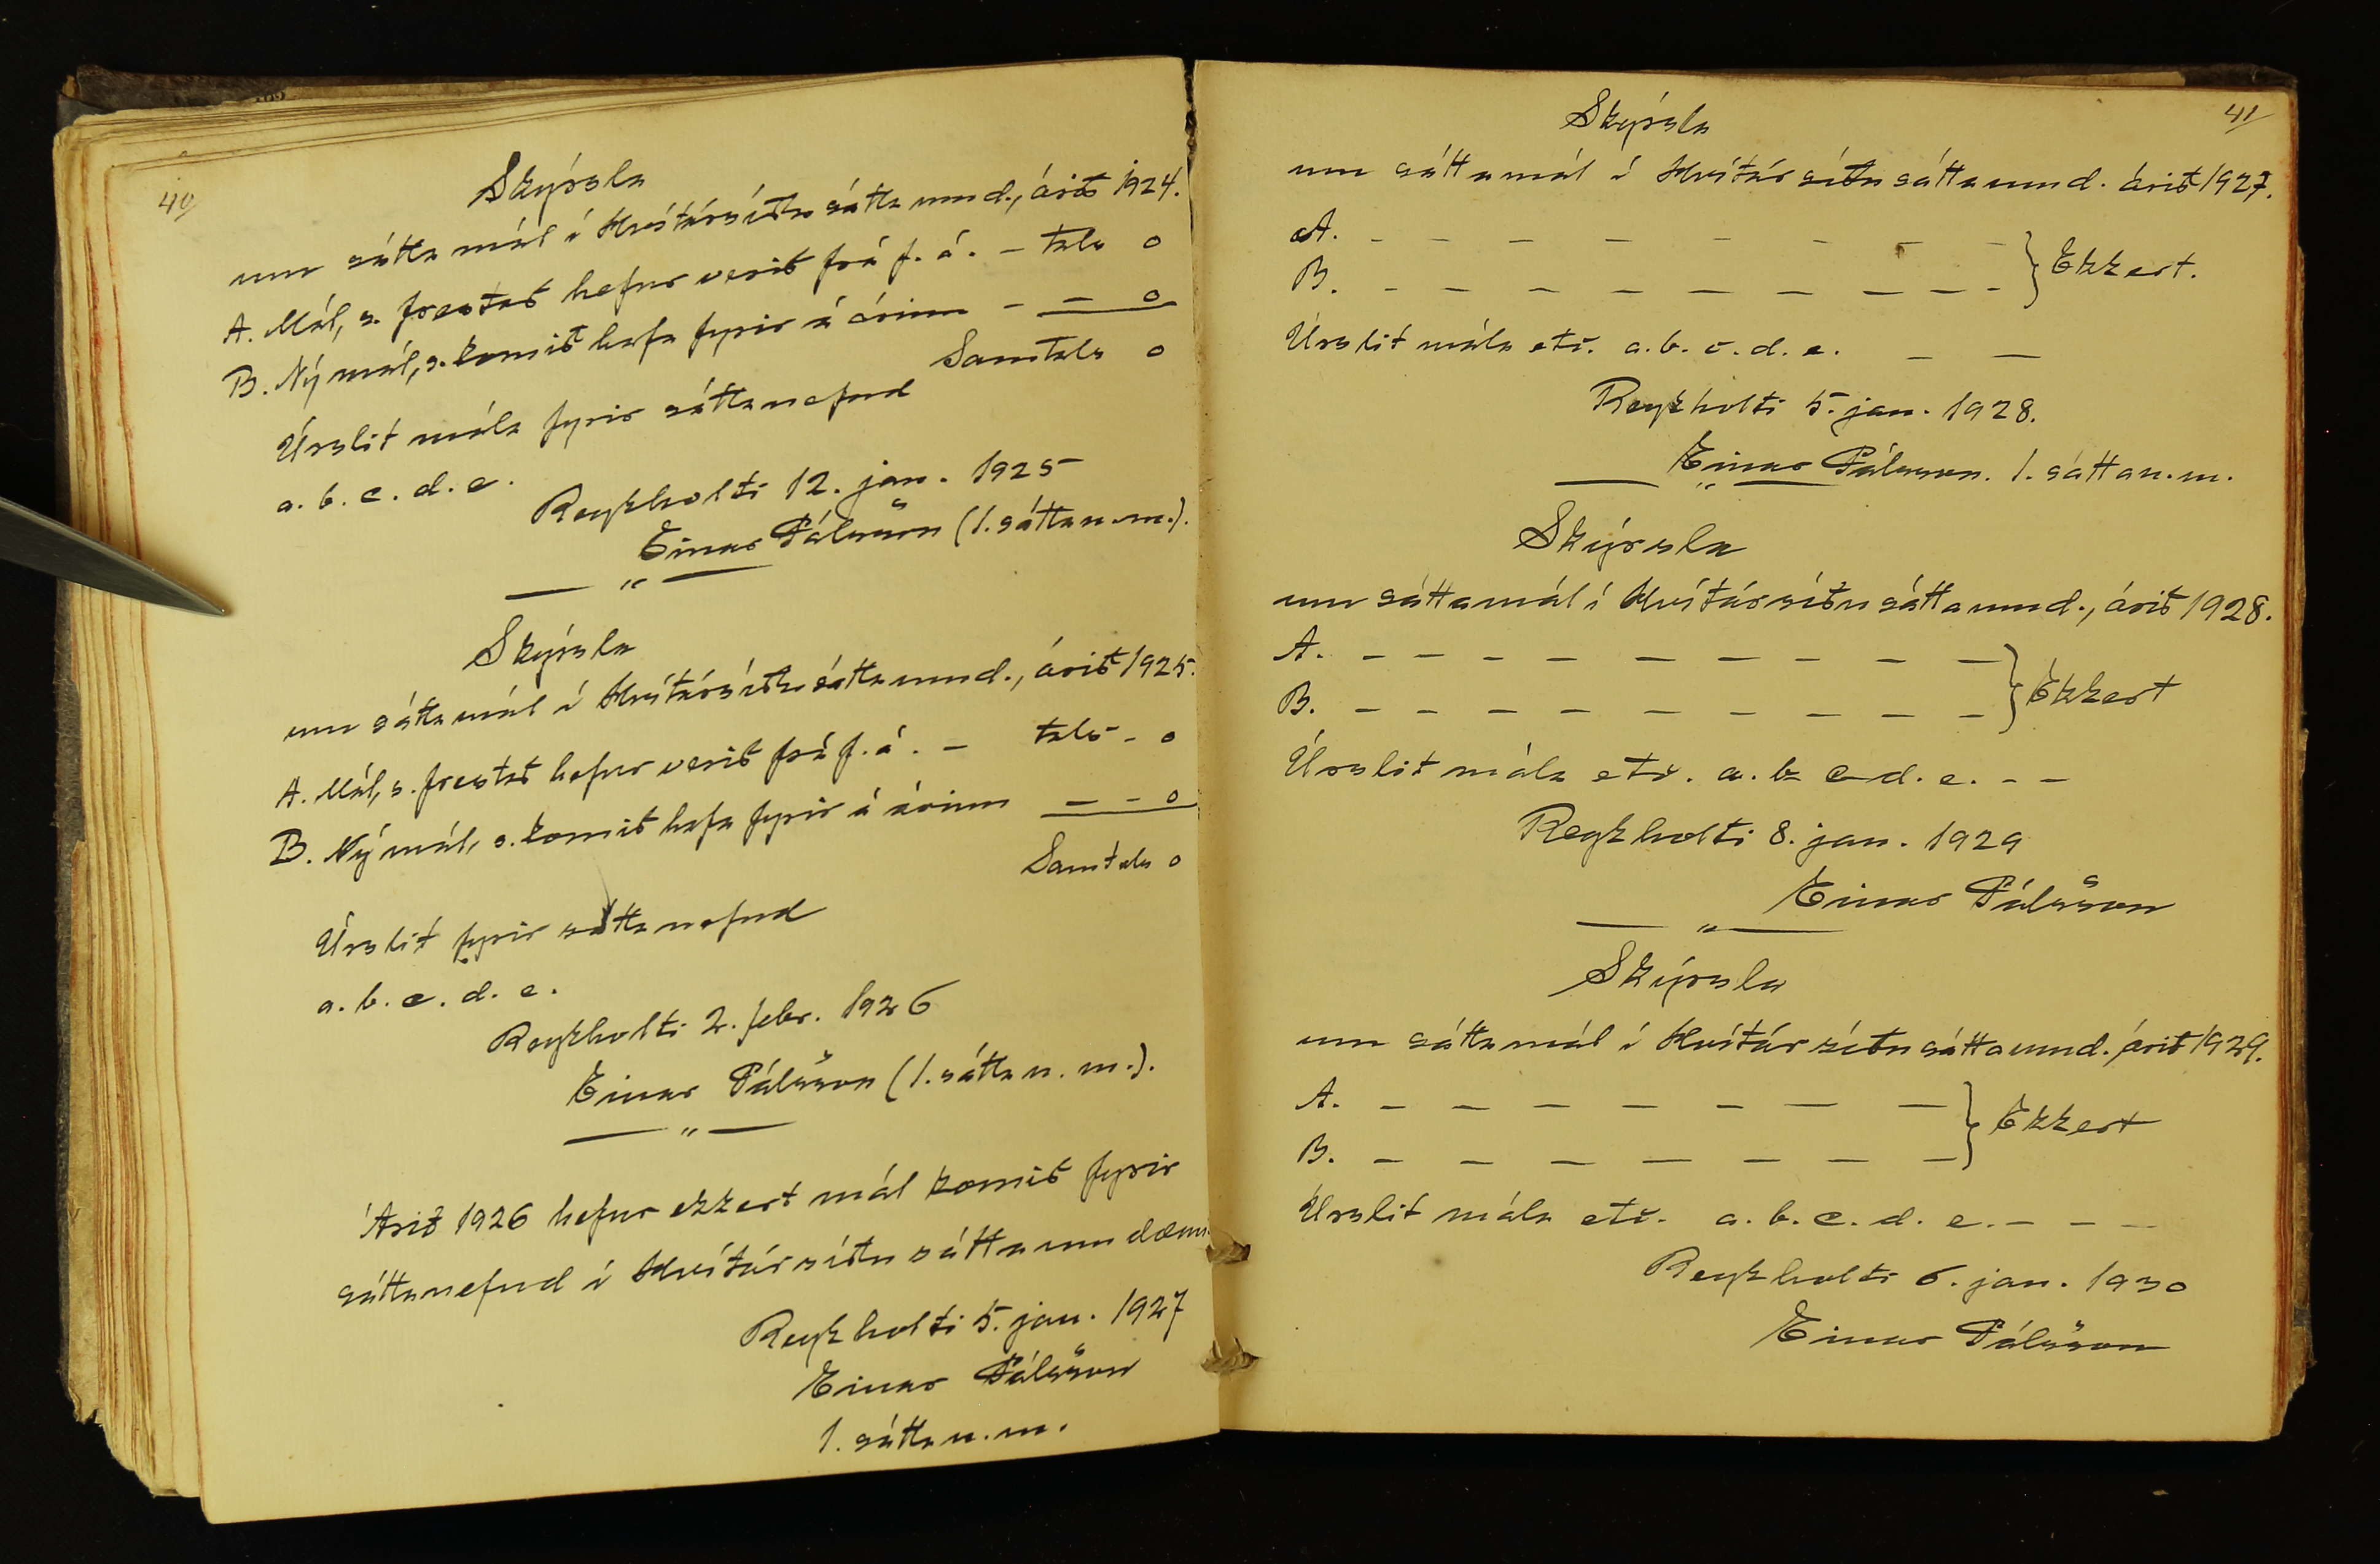 40/
Skýrsla
um sáttamál í Hvítársíðu sáttaumd., árið 1924.
A. Mál, s. frestað hefur verið frá f. á. - tals 0
B. Ný mál, s. komið hafa fyrir á árinu - — 0
Samtals 0
Úrslit mála fyrir sáttanefnd
a. b. c. d. e.
Reykholti 12. jan. 1925
Einar Pálsson (1. sáttan.m.).
— „ —
Skýrsla
um sáttamál í Hvítársíðu sáttaumd., árið 1925.
A. Mál, s. frestað hefur verið frá f. á. - tals - 0
B. Ný mál, s. komið hafa fyrir á árinu — - 0
Samtals 0
Úrslit fyrir sáttanefnd
a. b. c. d. e.
Reykholti 2. febr. 1926
Einar Pálsson (1. sáttan. m.).
— „ —
Árið 1926 hefur ekkert mál komið fyrir
sáttanefnd í Hvítársíðu sáttaumdæmi
Reykholti 5. jan. 1927
Einar Pálsson
1. sáttan.m.
41/
Skýrsla
um sáttamál í Hvítársíðu sáttaumd. árið 1927.
A. - - - - - - - - } Ekkert.
B. - - - - - - - - - }
Úrslit mála etc. a. b. c. d. e. — —
Reykholti 5. jan. 1928.
Einar Pálsson. 1. sáttan.m.
— „ —
Skýrsla
um sáttamál í Hvítársíðu sáttaumd., árið 1928.
A. - - - - - - - - - } Ekkert
B. - - - - - - - - - }
Úrslit mála etc. a. b. c. d. e. - -
Reykholti 8. jan. 1929
Einar Pálsson
— „ —
Skýrsla
um sáttamál í Hvítársíðu sáttaumd. árið 1929.
A. - - - - - - - } Ekkert
B. - - - - - - - }
Úrslit mála etc. a. b. c. d. e. - - -
Reykholti 6. jan. 1930
Einar Pálsson